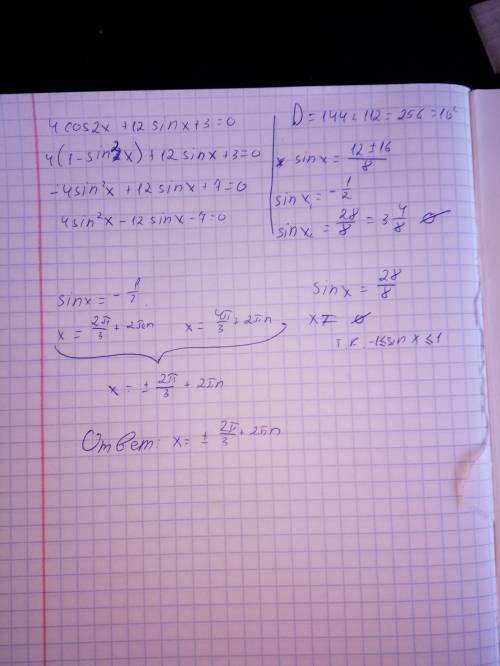 4cos2x + 12sinx + 3 = 0
4(1 - sin²x) + 12sinx + 3 = 0
-4sin²x + 12sinx + 7 = 0
4sin²x - 12sinx - 7 = 0
D = 144 + 112 = 256 = 16²
sinx = (12 ± 16)/8
sinx₁ = -1/2
sinx₂ = 28/8 = 3 4/8 ∅
sinx = -1/2.
x = 2π/3 + 2πn x = 4π/3 + 2πn
x = ± 2π/3 + 2πn
sinx = 28/8
x = ∅
т.к. -1≤sinx≤1
Ответ: x = ± 2π/3 + 2πn